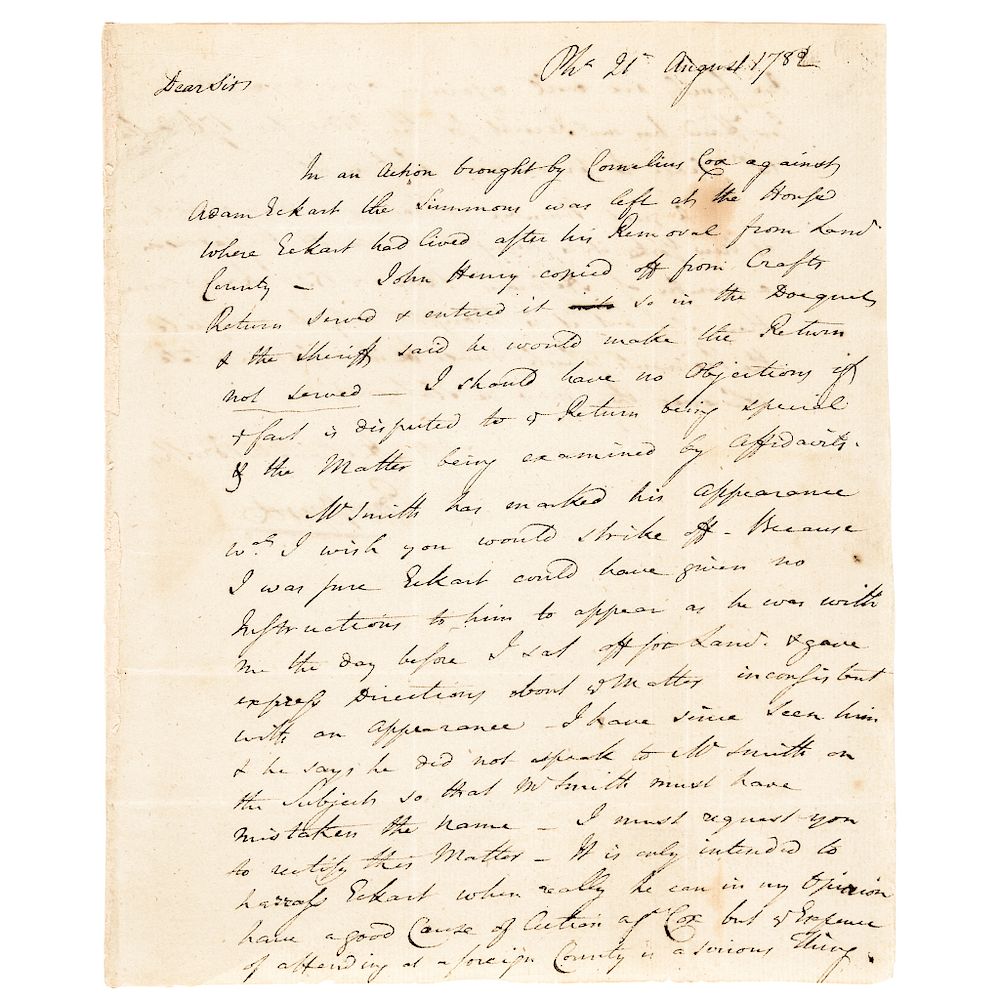 Pha 21st August 1782
Dear Sir
In an Action brought by Cornelius Cox against
Adam Eckart the Summons was left at the House
where Eckart had lived after his Removal from Land
County — John Henry copied off from Crafts
Return served & entered it so in the Docquets
& the Sheriff said he would make the Return
not served — I should have no Objections if
ye fact is disputed to ye Return being special
& the Matter being examined by Affidavits.
Mr Smith has marked his Appearance
wch I wish you would strike off — Because
I was sure Eckart could have given no
Instructions to him to appear as he was with
me the day before I sat off for Land. & gave
express Directions about ye Matter inconsistent
with an Appearance — I have since seen him
& he says he did not speak to Mr Smith on
the Subject so that Mr Smith must have
mistaken the name — I must request you
to rectify this Matter — It is only intended to
harrass Eckart when really he can in my Opinion
have a good Cause of Action agt Cox but ye Expence
of attending at a foreign County is a serious Thing.